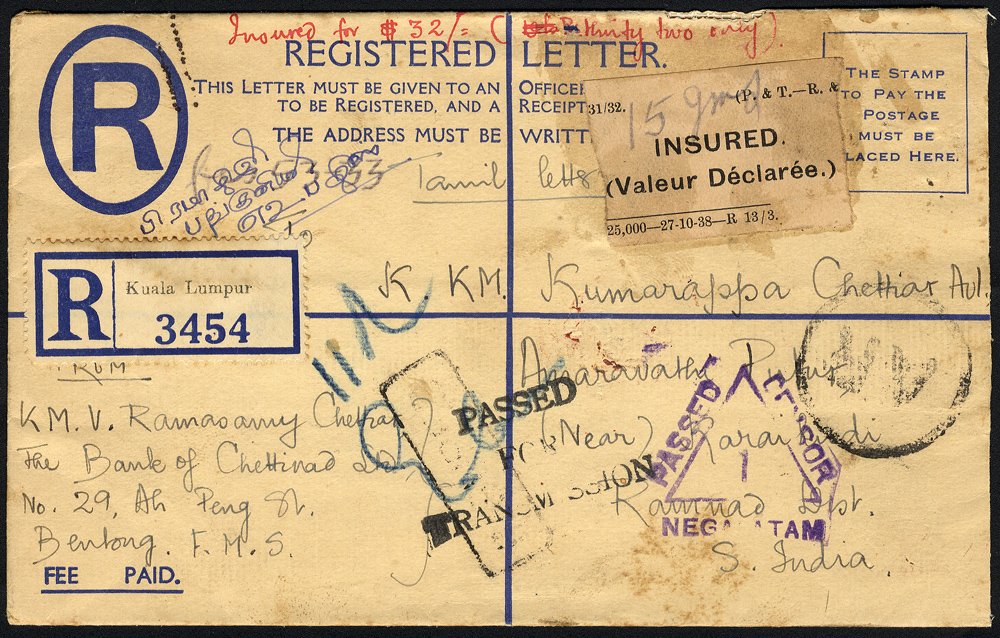 Insured for $ 32/= ( thirty two only).
R
REGISTERED LETTER.
THIS LETTER MUST BE GIVEN TO AN OFFICE
TO BE REGISTERED, AND A RECEIPT
THE ADDRESS MUST BE WRITT
THE STAMP
TO PAY THE
POSTAGE
MUST BE
LACED HERE.
31/32. (P. & T.—R. &
15 gms
INSURED.
(Valeur Déclarée.)
25,000—27-10-38—R 13/3.
Tamil letter
R
Kuala Lumpur
3454
K KM. Kumarappa Chettiar Avl.
Amaravathi Pudur
(Near) Karaikudi
Ramnad Dist.
S. India.
K.M.V. Ramasamy Chettiar
The Bank of Chettinad Ld
No. 29, Ah Peng St.
Bentong. F.M.S.
FEE PAID.
PASSED
FOR
TRANSMISSION
PASSED CENSOR
1
NEGAPATAM